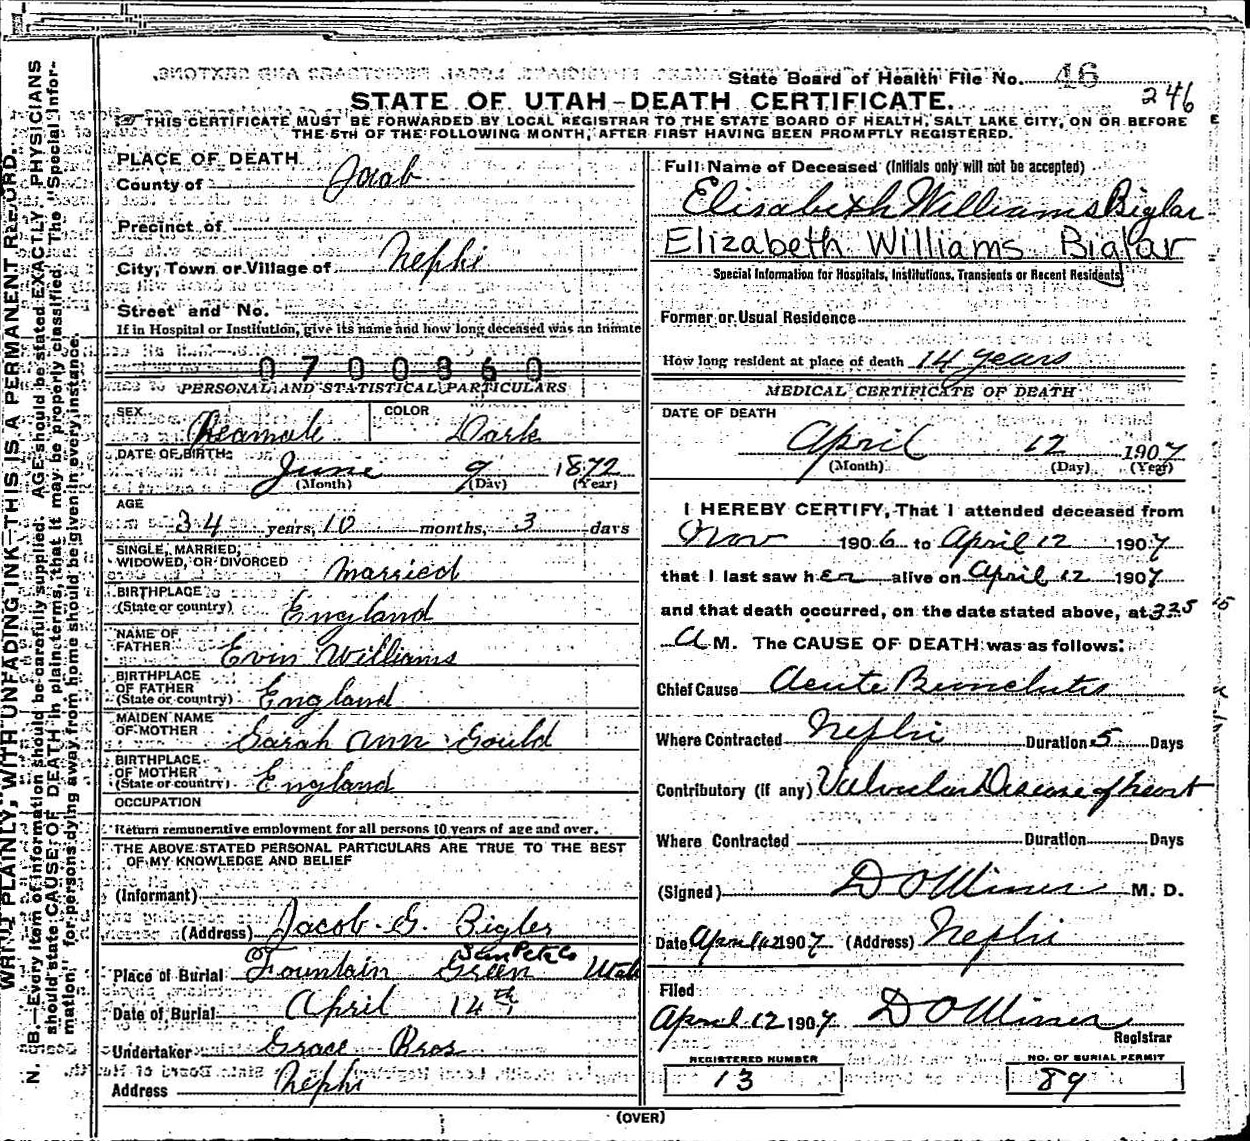 State Board of Health File No. 46
246
STATE OF UTAH—DEATH CERTIFICATE.
THIS CERTIFICATE MUST BE FORWARDED BY LOCAL REGISTRAR TO THE STATE BOARD OF HEALTH, SALT LAKE CITY, ON OR BEFORE
THE 5TH OF THE FOLLOWING MONTH, AFTER FIRST HAVING BEEN PROMPTLY REGISTERED.
PLACE OF DEATH
County of Juab
Precinct of
City, Town or Village of Nephi
Street and No.
If in Hospital or Institution, give its name and how long deceased was an inmate
0700360
PERSONAL AND STATISTICAL PARTICULARS
SEX Feamale COLOR Dark
DATE OF BIRTH: June 9 1872
(Month) (Day) (Year)
AGE
34 years, 10 months, 3 days
SINGLE, MARRIED,
WIDOWED, OR DIVORCED married
BIRTHPLACE
(State or country) England
NAME OF
FATHER Evin Williams
BIRTHPLACE
OF FATHER
(State or country) England
MAIDEN NAME
OF MOTHER Sarah Ann Gould
BIRTHPLACE
OF MOTHER
(State or country) England
OCCUPATION
Return remunerative employment for all persons 10 years of age and over.
THE ABOVE STATED PERSONAL PARTICULARS ARE TRUE TO THE BEST
OF MY KNOWLEDGE AND BELIEF
(Informant)
(Address) Jacob G. Bigler
San Pete Co
Place of Burial Fountain Green Utah
Date of Burial April 14th
Undertaker Grace Bros
Address Nephi
Full Name of Deceased (Initials only will not be accepted)
Elisabeth Williams Biglar
Elizabeth Williams Biglar
Special Information for Hospitals, Institutions, Transients or Recent Residents
Former or Usual Residence
How long resident at place of death 14 years
MEDICAL CERTIFICATE OF DEATH
DATE OF DEATH
April 12 1907
(Month) (Day) (Year)
I HEREBY CERTIFY, That I attended deceased from
Nov 1906 to April 12 1907
that I last saw her alive on April 12 1907
and that death occurred, on the date stated above, at 325
A M. The CAUSE OF DEATH was as follows:
Chief Cause Acute
Where Contracted Nephi Duration 5 Days
Contributory (if any) Valvular Disease of heart
Where Contracted Duration Days
(Signed) D O Miner M. D.
Date April 12 1907 (Address) Nephi
Filed
April 12 1907 D O Miner
Registrar
REGISTERED NUMBER
13
NO. OF BURIAL PERMIT
89
(OVER)
WRITE PLAINLY, WITH UNFADING INK—THIS IS A PERMANENT RECORD.
N. B.—Every item of information should be carefully supplied. AGE should be stated EXACTLY. PHYSICIANS
should state CAUSE OF DEATH in plain terms, that it may be properly classified. The "Special Infor-
mation" for persons dying away from home should be given in every instance.